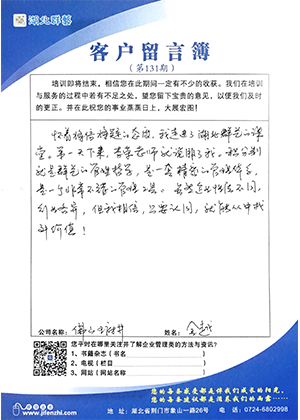 湖北群艺
客户留言簿
（第131期）
培训即将结束。相信您在此期间一定有不少的收获。我们在培训
与服务的过程中若有不足之处，望您留下宝贵的意见，以便我们及时
的更正。并在此祝您的事业蒸蒸日上，大展宏图！
怀着将信将疑的态度，我走进了湖北群艺的课
堂。第一天下来，老师就说服了我。积分制
就是群艺的管理哲学，是一套精密的管理体系，
是一个非常不错的管理工具。虽然企业性质不同，
行业各异，但我相信，只要认同，就能从中找
到价值！
公司名称：佛山 姓名：
您平时在哪里关注并了解企业管理类的方法与资讯？
1、书籍杂志（书名）
2、电视（栏目）
3、网站（网站名称）
www.jifenzhi.com
您的每条感受都是伴我们成长的阳光，
您的每条建议都是滋润我们的雨露……
地址：湖北省荆门市象山一路26号 电话：0724-6802998